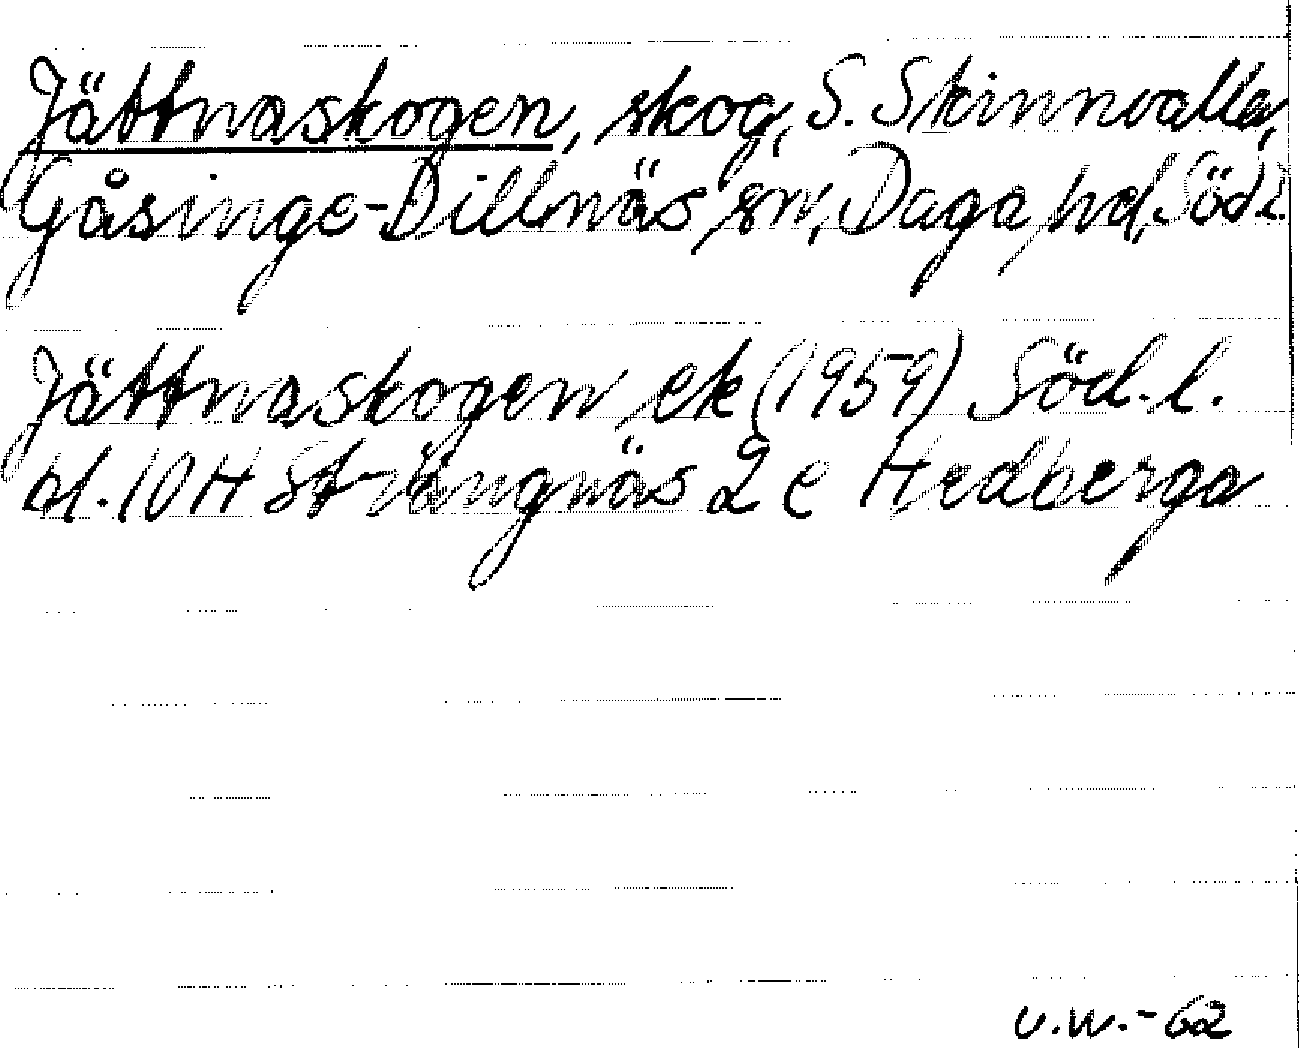 Jättnaskogen, skog, S. Skinnvalla,
Gåsinge-Dillnäs sn, Daga hd, Södl.
Jättnaskogen ek (1959) Söd.l.
bl. 10H Strängnäs 2 e Hedberga
U.W.-62